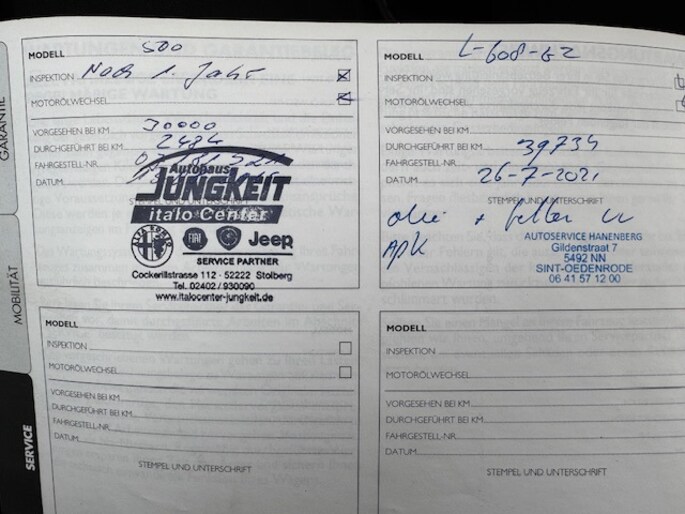 GARANTIE
MOBILITÄT
SERVICE
MODELL 500
INSPEKTION Nach 1. Jahr
MOTORÖLWECHSEL
VORGESEHEN BEI KM 30000
DURCHGEFÜHRT BEI KM 2484
FAHRGESTELL-NR.
DATUM
Autohaus
JUNGKEIT
italo Center
ALFA ROMEO FIAT Jeep
SERVICE PARTNER
Cockerillstrasse 112 · 52222 Stolberg
Tel. 02402 / 930090
www.italocenter-jungkeit.de
MODELL L-608-GZ
INSPEKTION
MOTORÖLWECHSEL
VORGESEHEN BEI KM
DURCHGEFÜHRT BEI KM 39734
FAHRGESTELL-NR.
DATUM 26-7-2021
STEMPEL UND UNTERSCHRIFT
olie + filter
APK
AUTOSERVICE HANENBERG
Gildenstraat 7
5492 NN
SINT-OEDENRODE
06 41 57 12 00
MODELL
INSPEKTION
MOTORÖLWECHSEL
VORGESEHEN BEI KM
DURCHGEFÜHRT BEI KM
FAHRGESTELL-NR.
DATUM
STEMPEL UND UNTERSCHRIFT
MODELL
INSPEKTION
MOTORÖLWECHSEL
VORGESEHEN BEI KM
DURCHGEFÜHRT BEI KM
FAHRGESTELL-NR.
DATUM
STEMPEL UND UNTERSCHRIFT